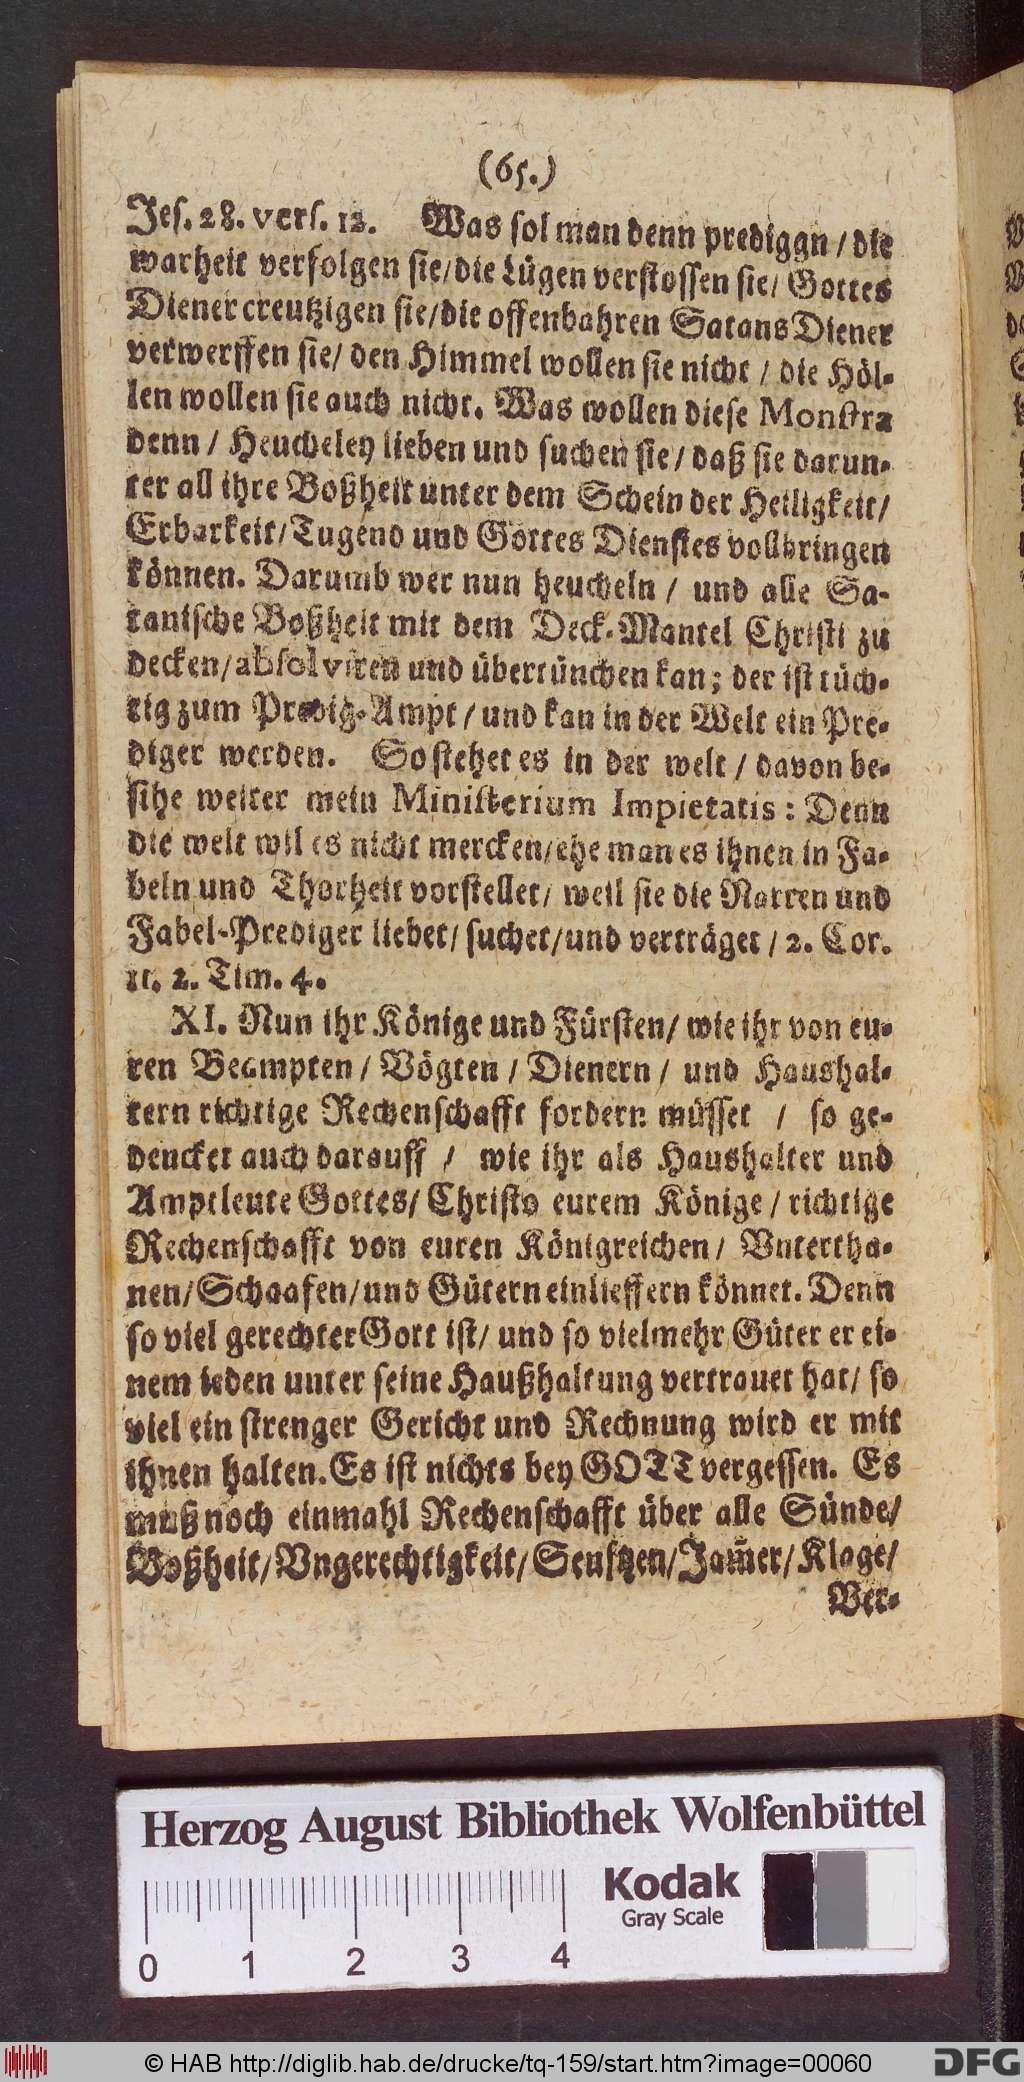 (65.)
Jes. 28. vers. 12. Was sol man denn prediggn / die
warheit verfolgen sie/die Lügen verstossen sie/ Gottes
Diener creutzigen sie/die offenbahren Satans Diener
verwerffen sie/ den Himmel wollen sie nicht / die Höl-
len wollen sie auch nicht. Was wollen diese Monstra
denn / Heucheley lieben und suchen sie / daß sie darun-
ter all ihre Boßheit unter dem Schein der Heiligkeit/
Erbarkeit/Tugend und Gottes Dienstes vollbringen
können. Darumb wer nun heucheln / und alle Sa-
tanische Boßheit mit dem Deck-Mantel Christi zu
decken/absolviren und übertünchen kan; der ist tüch-
tig zum Predig-Ampt / und kan in der Welt ein Pre-
diger werden. So stehet es in der welt / davon be-
sihe weiter mein Ministerium Impietatis: Denn
die welt wil es nicht mercken/ehe man es ihnen in Fa-
beln und Thorheit vorstellet/ weil sie die Narren und
Fabel-Prediger liebet/ suchet/und verträget / 2. Cor.
11. 2. Tim. 4.
XI. Nun ihr Könige und Fürsten/ wie ihr von eu-
ren Beampten / Vögten / Dienern / und Haushal-
tern richtige Rechenschafft fordern müsset / so ge-
dencket auch darauff / wie ihr als Haushalter und
Amptleute Gottes/ Christo eurem Könige / richtige
Rechenschafft von euren Königreichen / Vntertha-
nen/Schaafen/und Gütern einlieffern könnet. Denn
so viel gerechter Gott ist/ und so vielmehr Güter er ei-
nem ieden unter seine Haußhaltung vertrauet hat/ so
viel ein strenger Gericht und Rechnung wird er mit
ihnen halten. Es ist nichts bey GOTT vergessen. Es
muß noch einmahl Rechenschafft über alle Sünde/
Boßheit/Vngerechtigkeit/Seuftzen/Jam̃er/Klage/
Ver-
Herzog August Bibliothek Wolfenbüttel
Kodak
Gray Scale
0 1 2 3 4
© HAB http://diglib.hab.de/drucke/tq-159/start.htm?image=00060
DFG